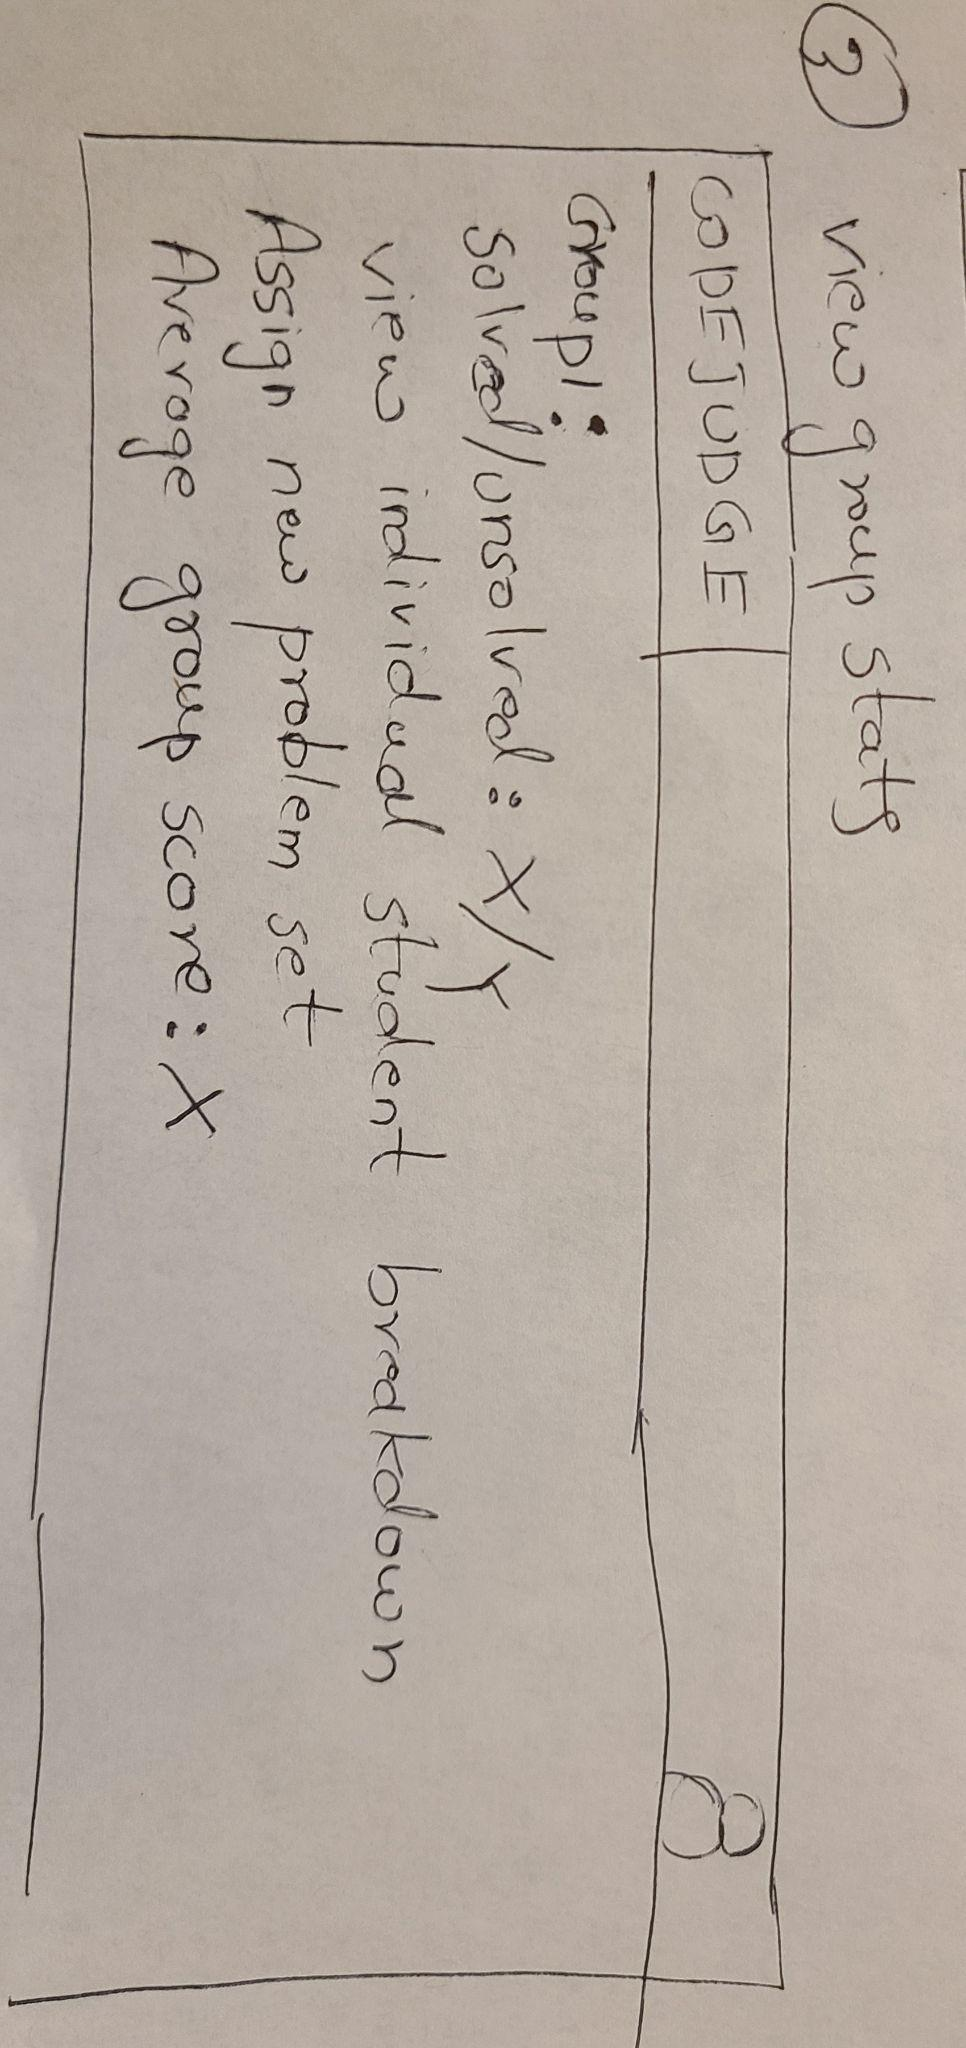 2 view group stats
CODEJUDGE
Group1:
Solved/unsolved: X/Y
view individual student breakdown
Assign new problem set
Average group score: X